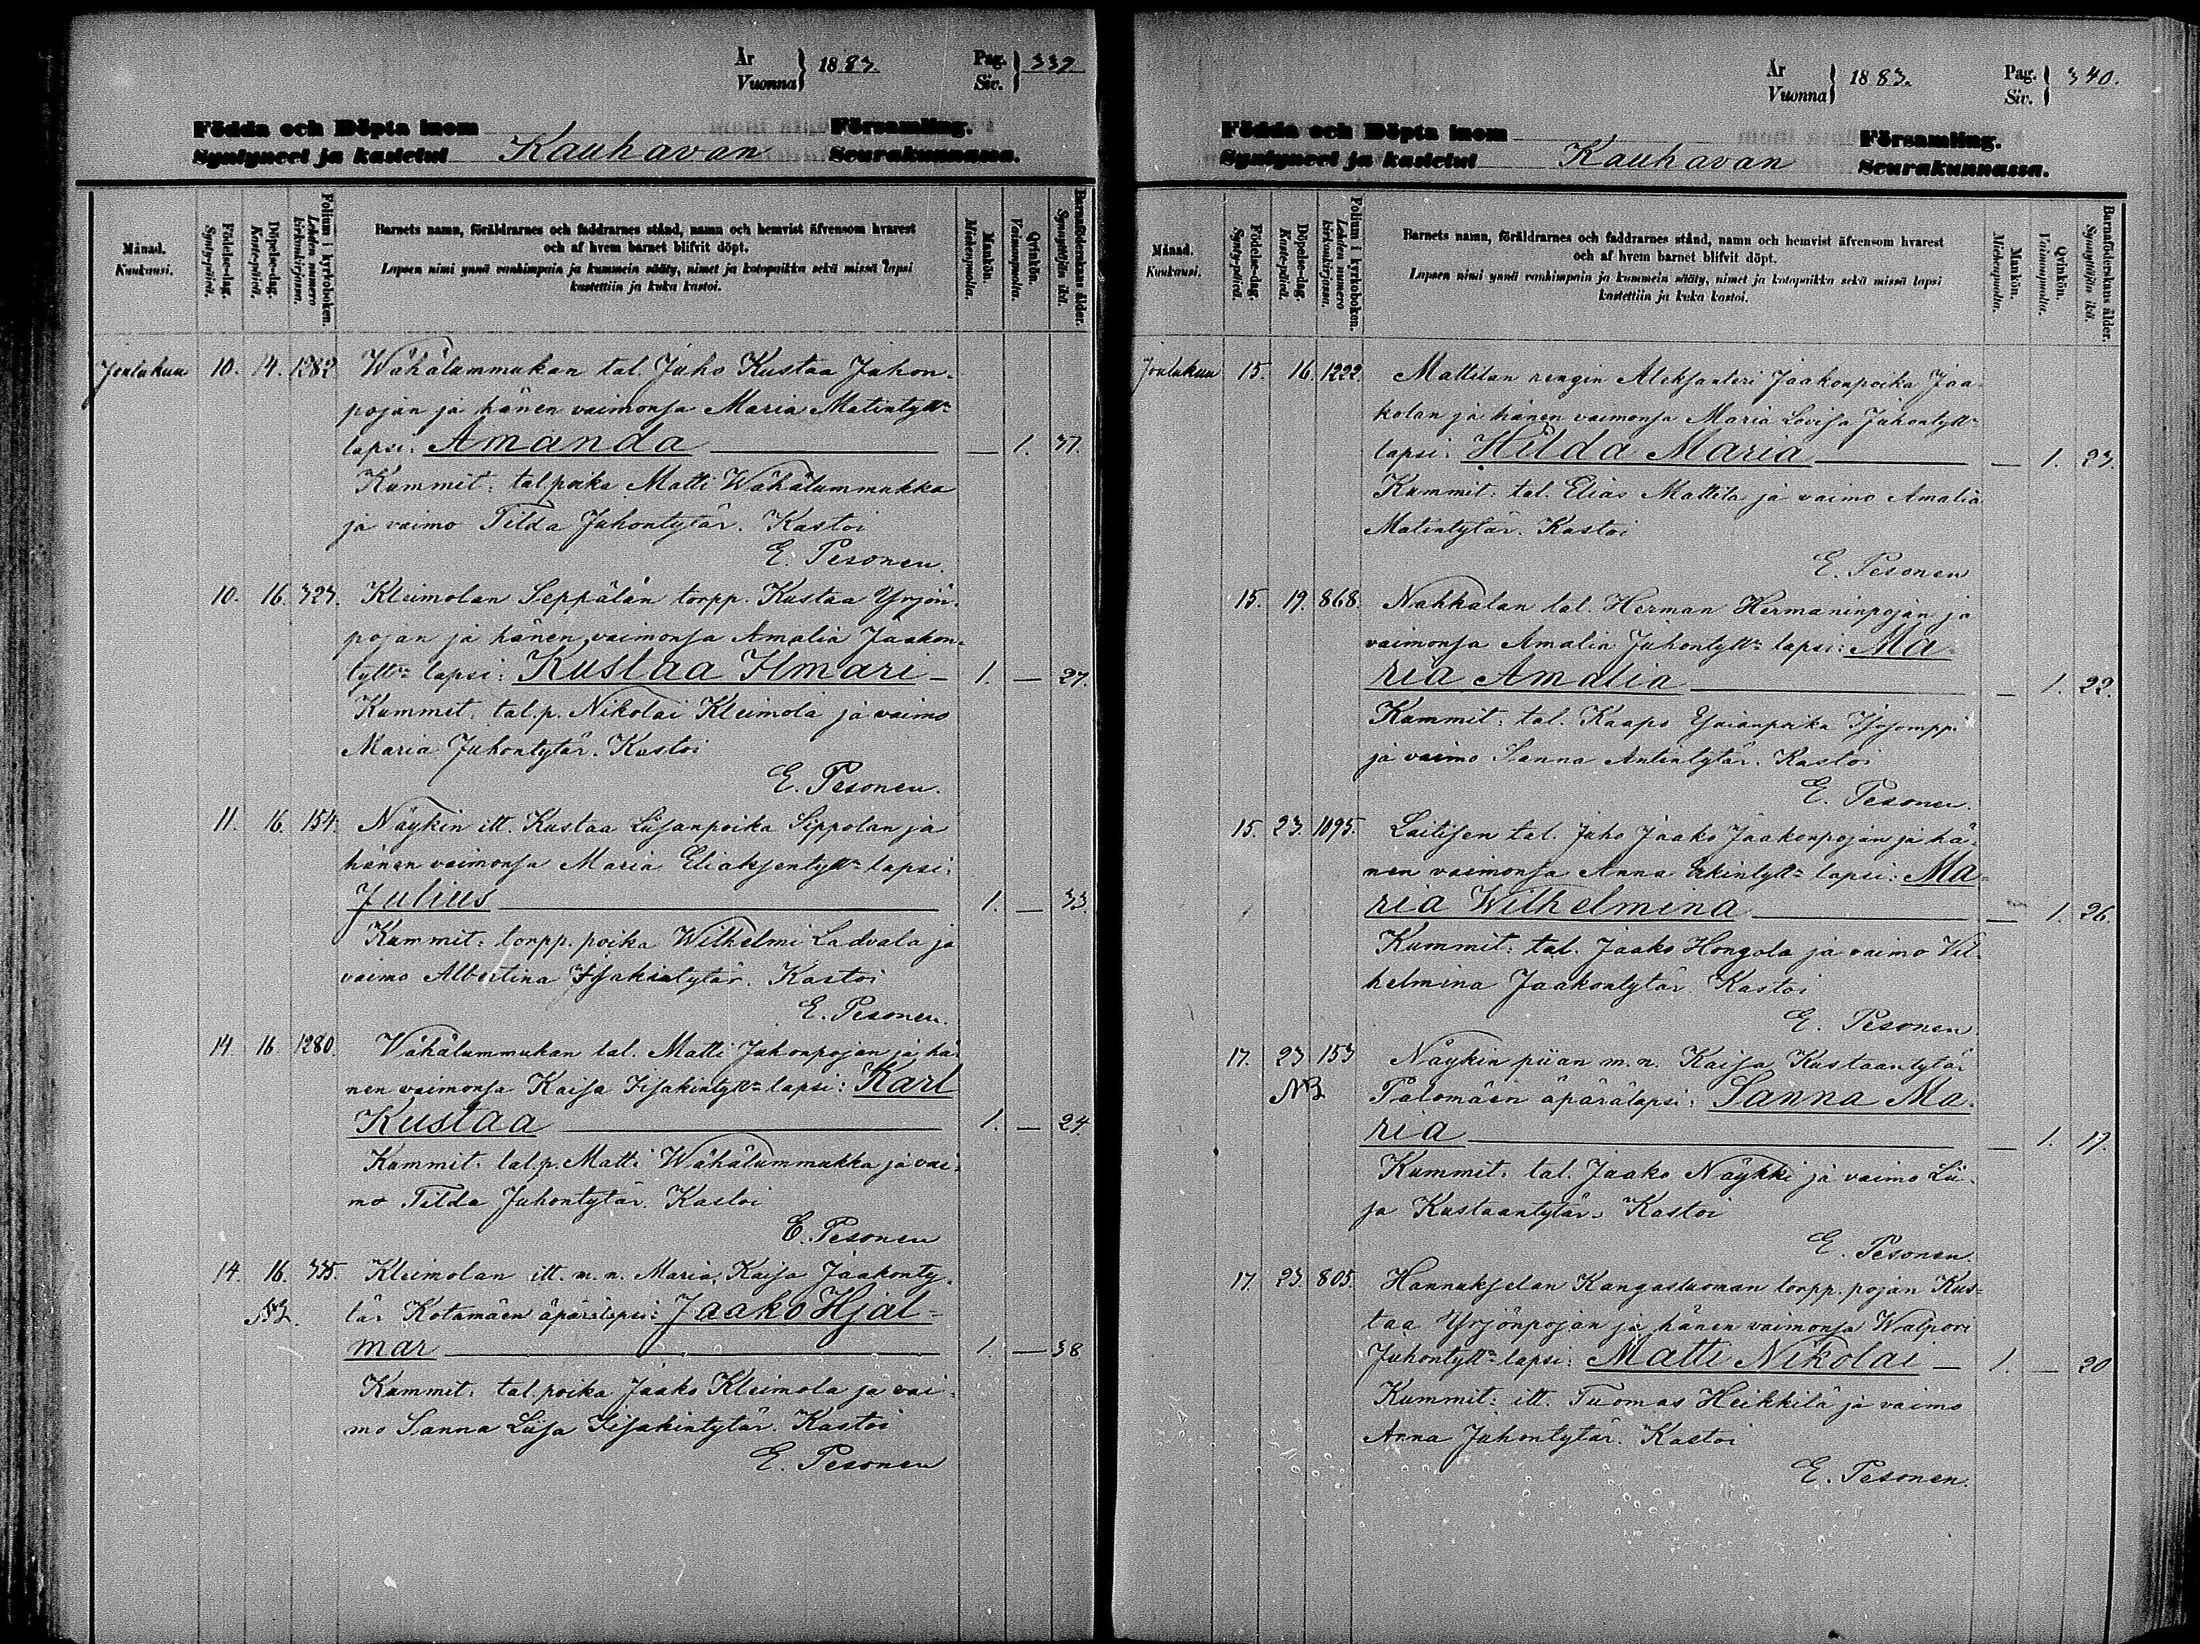 År Vuonna 1883. Pag. Siv. 339.
Födda och Döpta inom Församling.
Syntyneet ja kastetut Kauhavan Seurakunnassa.
Månad. Kuukausi.
Födelse-dag. Synty-päivä.
Döpelse-dag. Kaste-päivä.
Folium i kyrkoboken. Lehden numero kirkonkirjassa.
Barnets namn, föräldrarnes och faddrarnes stånd, namn och hemvist äfvensom hvarest
och af hvem barnet blifvit döpt.
Lapsen nimi ynnä vanhimpain ja kummein sääty, nimet ja kotopaikka sekä missä lapsi
kastettiin ja kuka kastoi.
Mankön. Miehenpuolta.
Qvinkön. Vaimonpuolta.
Barnaföderskans ålder. Synnyttäjän ikä.
Joulukuu 10. 14. 1282 Wähälummukan tal. Juho Kustaa Juhon-
pojan ja hänen vaimonsa Maria Matintytt:
lapsi: Amanda — 1. 37.
Kummit: tal.poika Matti Wähälummukka
ja vaimo Tilda Juhontytär. Kastoi
E. Pesonen.
10. 16. 323. Kleimolan Seppälän torpp. Kustaa Yrjön-
pojan ja hänen vaimonsa Amalia Jaakon-
tytt: lapsi: Kustaa Ilmari — 1. — 27.
Kummit: tal.p. Nikolai Kleimola ja vaimo
Maria Juhontytär. Kastoi
E. Pesonen.
11. 16. 154. Näykin itt. Kustaa Liisanpoika Sippolan ja
hänen vaimonsa Maria Eliaksentytt: lapsi:
Julius 1. — 33.
Kummit: torpp. poika Wilhelmi Ladvala ja
vaimo Albertina Iisakintytär. Kastoi
E. Pesonen.
14 16 1280. Vähälummukan tal. Matti Juhonpojan ja hä-
nen vaimonsa Kaisa Iisakintytt: lapsi: Karl
Kustaa 1. — 24.
Kummit: tal.p. Matti Wähälummukka ja vai-
mo Tilda Juhontytär. Kastoi
E. Pesonen
14. 16. 335. Kleimolan itt. m. n. Maria Kaisa Jaakonty-
NB. tär Kotamäen äpärälapsi: Jaako Hjal-
mar 1. — 38
Kummit: tal.poika Jaako Kleimola ja vai-
mo Sanna Liisa Iisakintytär. Kastoi
E. Pesonen
År Vuonna 1883. Pag. Siv. 340.
Födda och Döpta inom Församling.
Syntyneet ja kastetut Kauhavan Seurakunnassa.
Månad. Kuukausi.
Födelse-dag. Synty-päivä.
Döpelse-dag. Kaste-päivä.
Folium i kyrkoboken. Lehden numero kirkonkirjassa.
Barnets namn, föräldrarnes och faddrarnes stånd, namn och hemvist äfvensom hvarest
och af hvem barnet blifvit döpt.
Lapsen nimi ynnä vanhimpain ja kummein sääty, nimet ja kotopaikka sekä missä lapsi
kastettiin ja kuka kastoi.
Mankön. Miehenpuolta.
Qvinkön. Vaimonpuolta.
Barnaföderskans ålder. Synnyttäjän ikä.
Joulukuu 15. 16. 1222. Mattilan rengin Aleksanteri Jaakonpoika Jaa-
kolan ja hänen vaimonsa Maria Lovisa Juhontytt:
lapsi: Hilda Maria — 1. 23.
Kummit: tal. Elias Mattila ja vaimo Amalia
Matintytär. Kastoi
E. Pesonen
15. 19. 868. Nahkalan tal. Herman Hermaninpojan ja
vaimonsa Amalia Juhontytt: lapsi: Ma-
ria Amalia — 1. 22.
Kummit: tal. Kaapo
ja vaimo Sanna Antintytär. Kastoi
E. Pesonen.
15. 23. 1095. Laitisen tal. Juho Jaako Jaakonpojan ja hä-
nen vaimonsa Anna Erkintytt: lapsi: Ma-
ria Wilhelmina — 1. 26.
Kummit: tal. Jaako Hongola ja vaimo Vil-
helmina Jaakontytär. Kastoi
E. Pesonen.
17. 23 153 Näykin piian m. n. Kaisa Kustaantytär
NB Palomäen äpärälapsi: Sanna Ma-
ria — 1. 19.
Kummit: tal. Jaako Näykki ja vaimo Lii-
sa Kustaantytär. Kastoi
E. Pesonen.
17. 23. 805. Hannukselan Kangasluoman torpp. pojan Kus-
taa Yrjönpojan ja hänen vaimonsa Walpori
Juhontytt: lapsi: Matti Nikolai — 1. — 20
Kummit: itt. Tuomas Heikkilä ja vaimo
Anna Juhontytär. Kastoi
E. Pesonen.